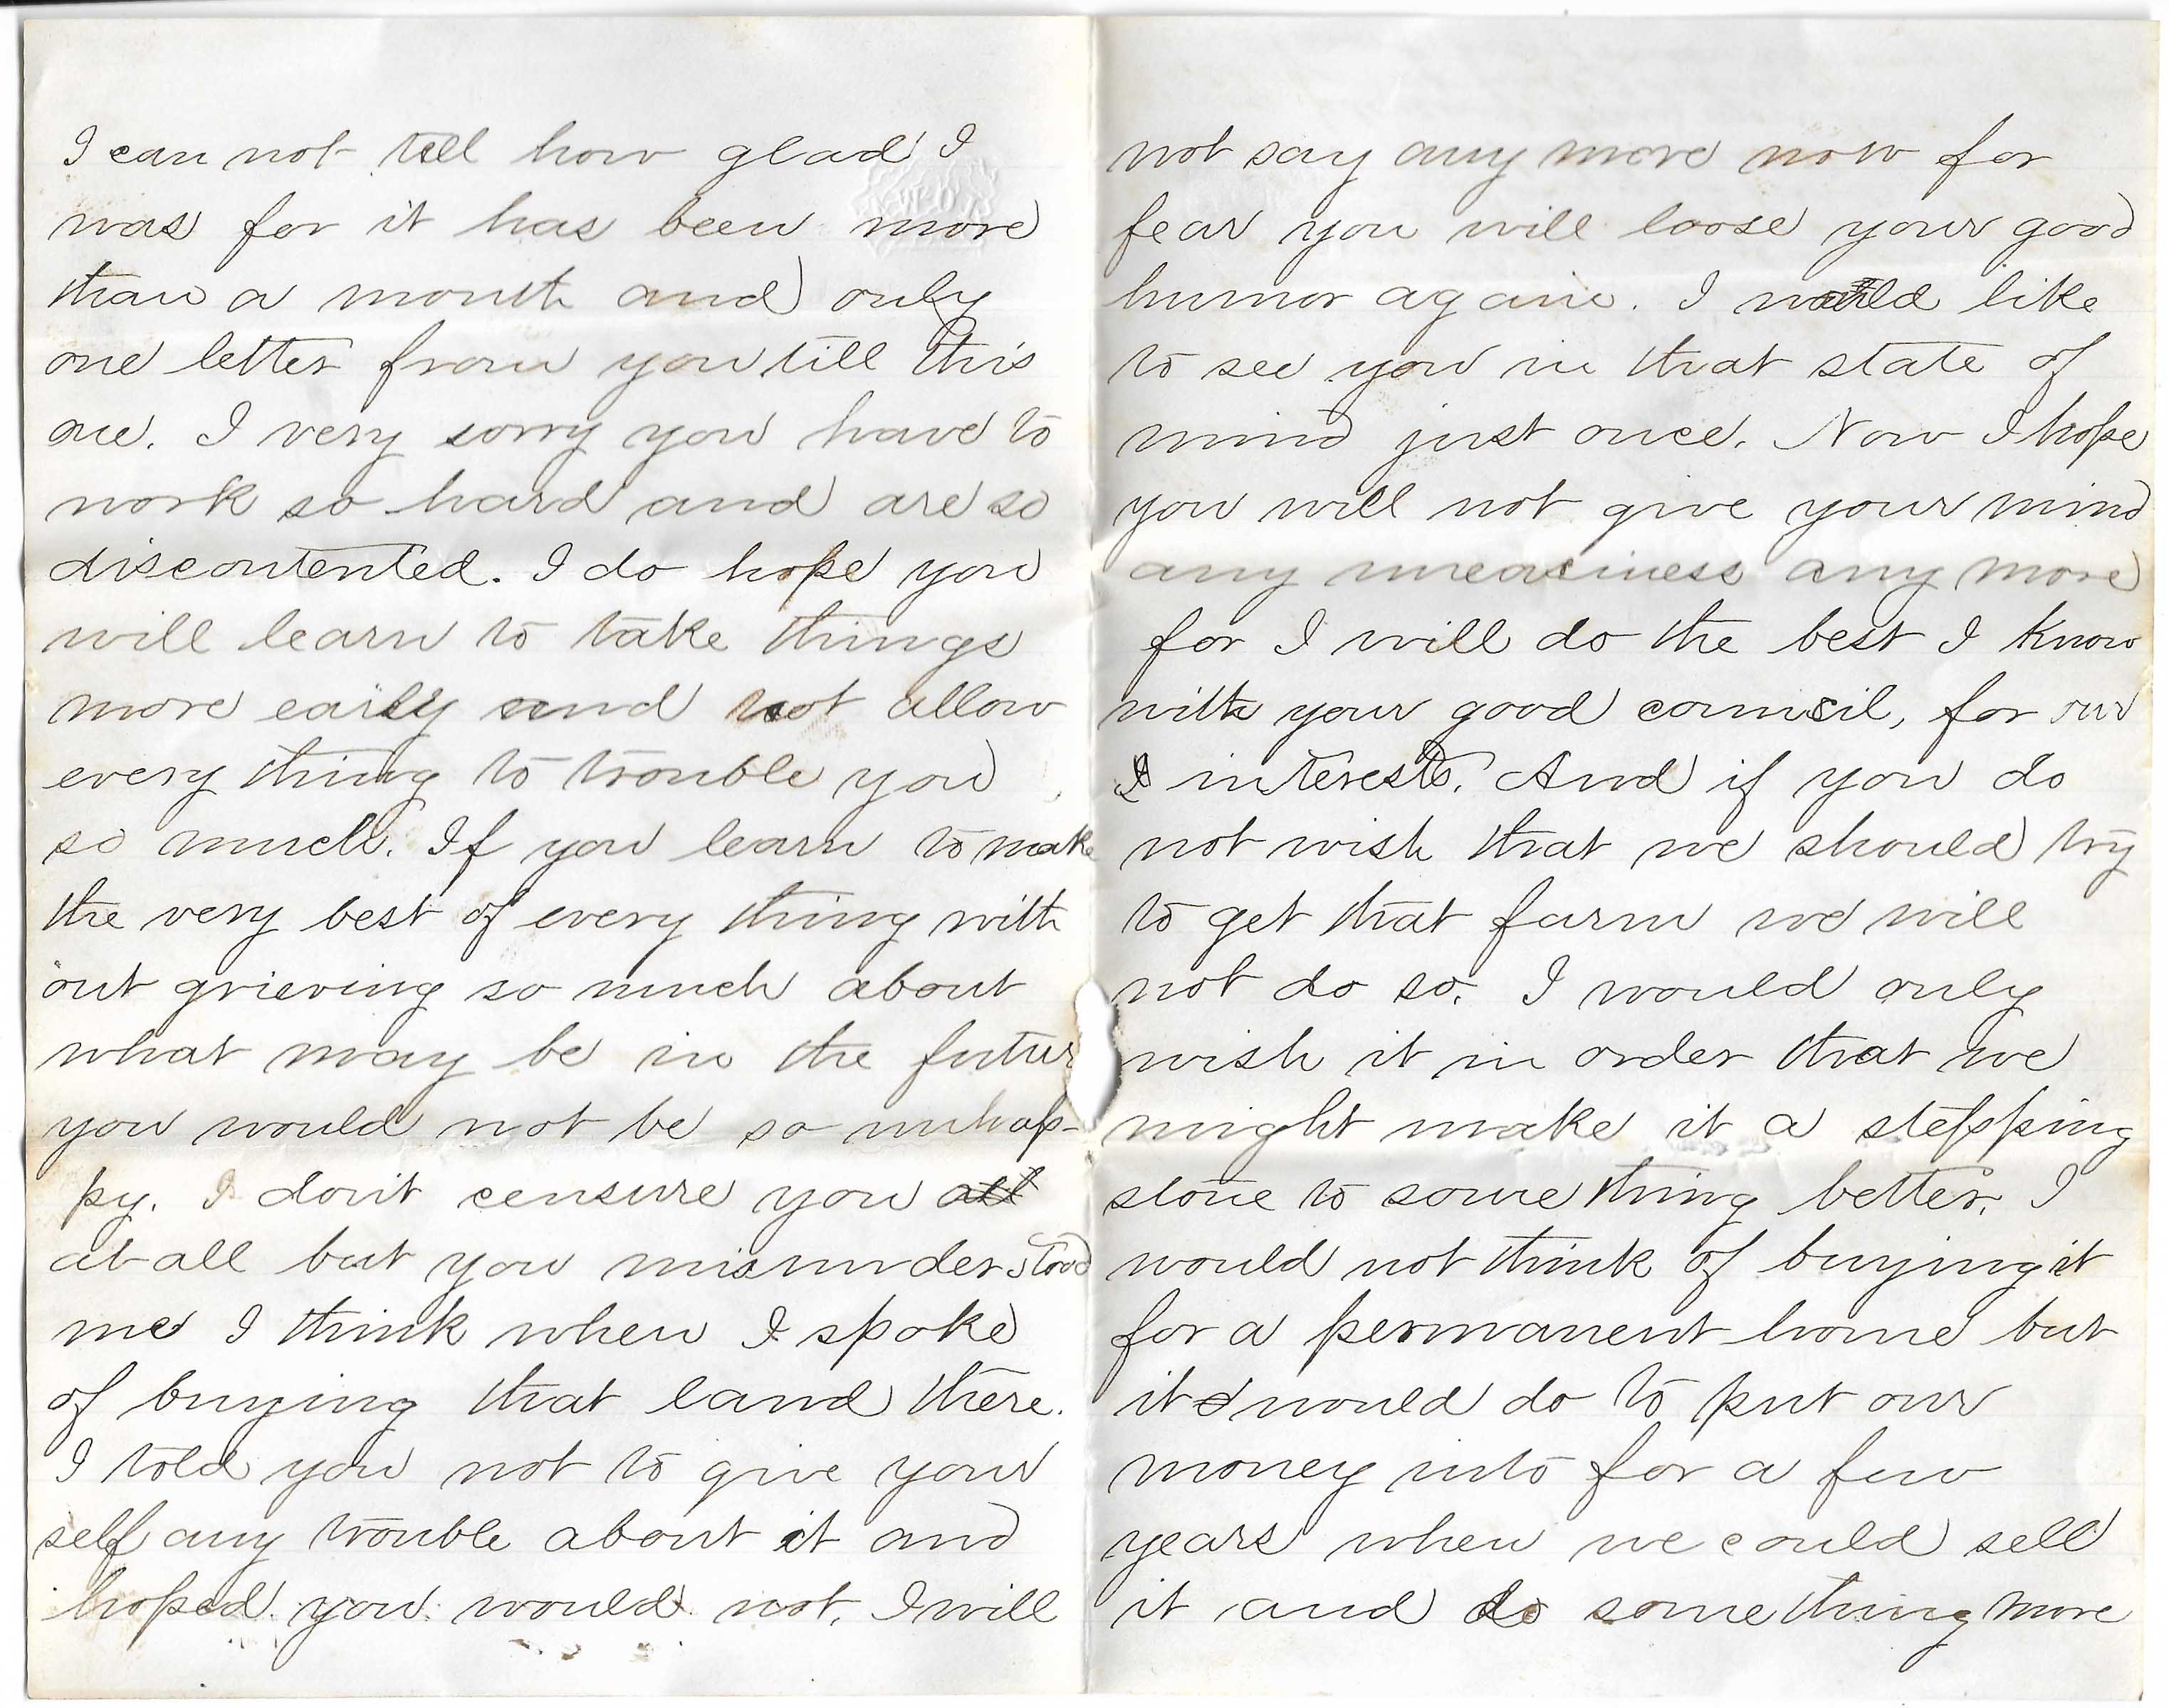 I can not tell how glad I
was for it has been more
than a month and only
one letter from you till this
one. I very sorry you have to
work so hard and are so
discontented. I do hope you
will learn to take things
more easily and not allow
every thing to trouble you
so much. If you learn to make
the very best of every thing with
out grieving so much about
what may be in the futur
you would not be so unhap-
py. I don't censure you all
at all but you misunderstood
me I think when I spoke
of buying that land there.
I told you not to give your
self any trouble about it and
hoped you would not. I will
not say any more now for
fear you will loose your good
humor again. I would like
to see you in that state of
mind just once. Now I hope
you will not give your mind
any uneasiness any more
for I will do the best I know
with your good council, for our
I interests. And if you do
not wish that we should try
to get that farm we will
not do so. I would only
wish it in order that we
might make it a stepping
stone to some thing better. I
would not think of buying it
for a permanent home but
it would do to put our
money into for a few
years when we could sell
it and do some thing more